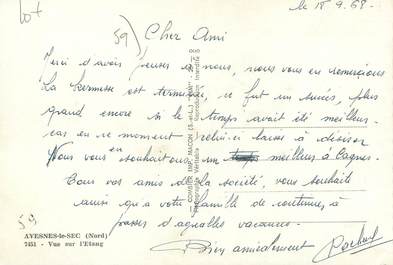 lot
le 18.9.68-
59)
Cher Ami
Merci d'avoir penser a nous, nous vous en remercions
La kermesse est terminée, ce fut un succés, plus
grand encore si le temps avait été meilleur
car en ce moment celui-ci laisse à désirer
Nous vous en souhaitons un meilleur à Cagnes.
Tous vos amis de la société, vous souhaite
ainsi qu'a votre famille de
passer d'agréables vacances.
Bien amicalement
59
AVESNES-le-SEC (Nord)
7451 - Vue sur l'Etang
COMBIER IMP. MACON (S.-et-L.) "CIM"